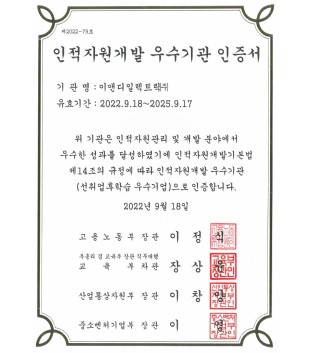 제2022-79호
인적자원개발 우수기관 인증서
기 관 명 : 이앤디일렉트릭㈜
유효기간 : 2022.9.18~2025.9.17
위 기관은 인적자원관리 및 개발 분야에서
우수한 성과를 달성하였기에 인적자원개발기본법
제14조의 규정에 따라 인적자원개발 우수기관
(선취업후학습 우수기업)으로 인증합니다.
2022년 9월 18일
고 용 노 동 부 장 관 이 정 식
부총리 겸 교육부 장관 직무대행
교 육 부 차 관 장 상 윤
산업통상자원부 장 관 이 창 양
중소벤처기업부 장 관 이 영